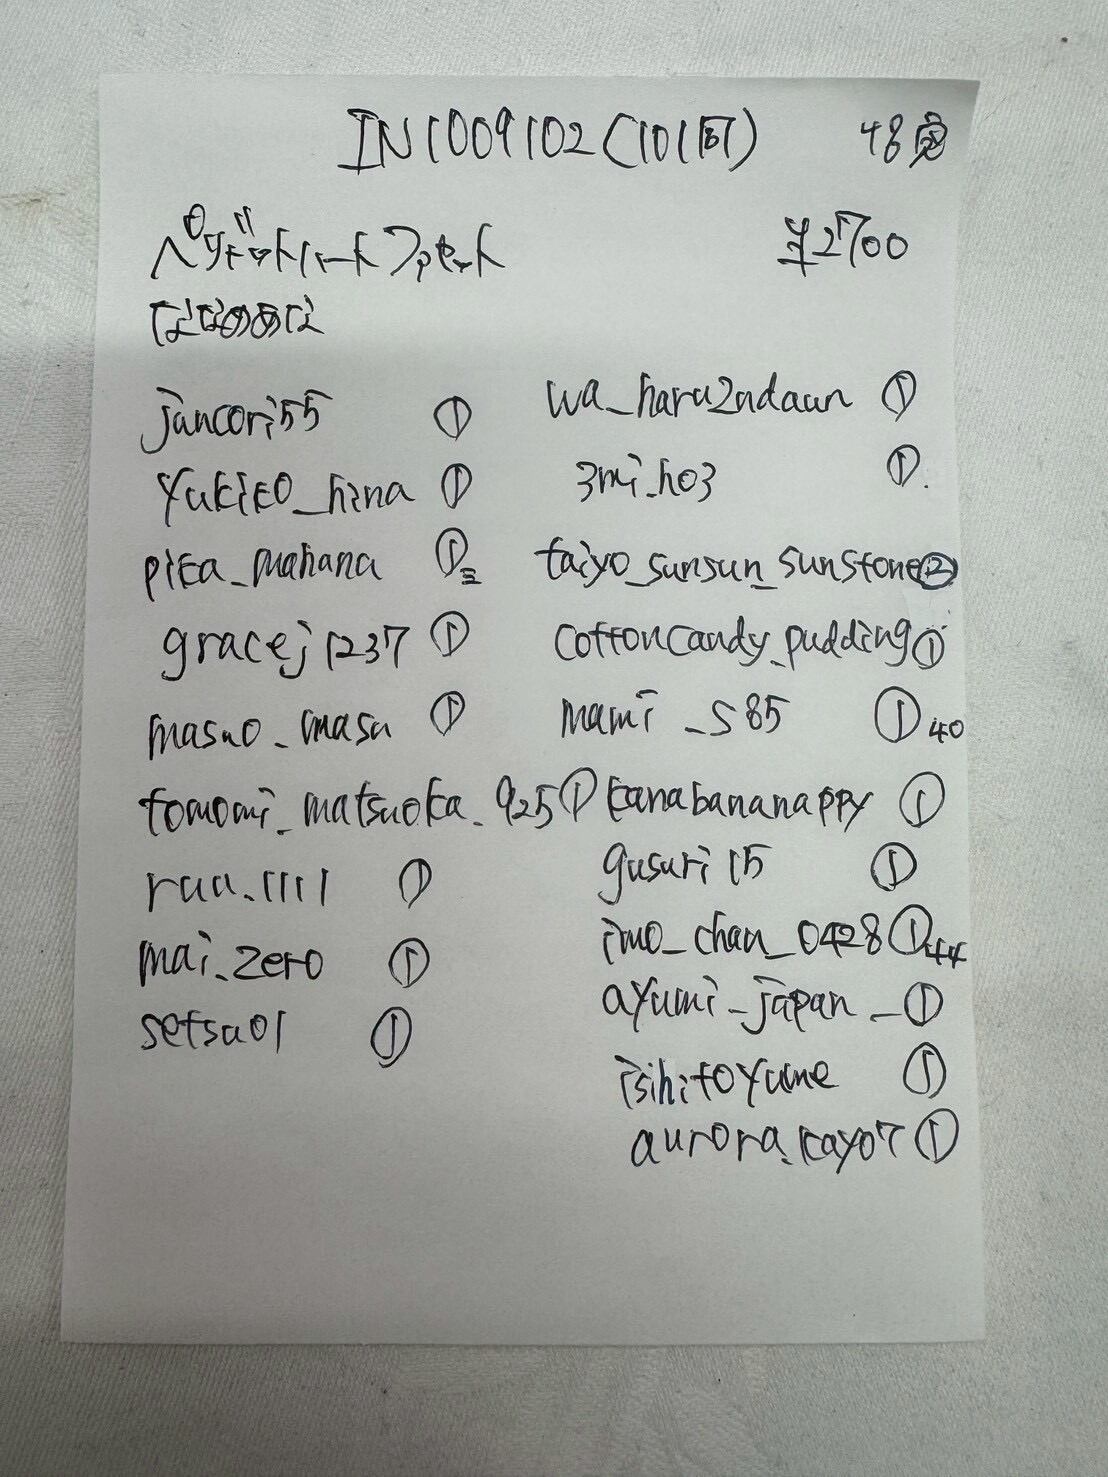 IN1009102(101回) 48宮
ペリドットハートファセット ¥2700
ななめあな
jancori55 ①
yukiko_hina ①
pika_mahana ①
gracej1237 ①
masuo_masa ①
tomomi_matsuoka_925 ①
ruu.1111 ①
mai.zero ①
setsu01 ①
wa_haru2ndaun ①
3mi_ho3 ①
taiyo_sunsun_sunstone ②
cottoncandy_pudding ①
mami_s85 ① 40
kanabananappy ①
gusuri15 ①
imo_chan_0428 ① 44
ayumi_japan_ ①
isihitoyume ①
aurora.kayo7 ①